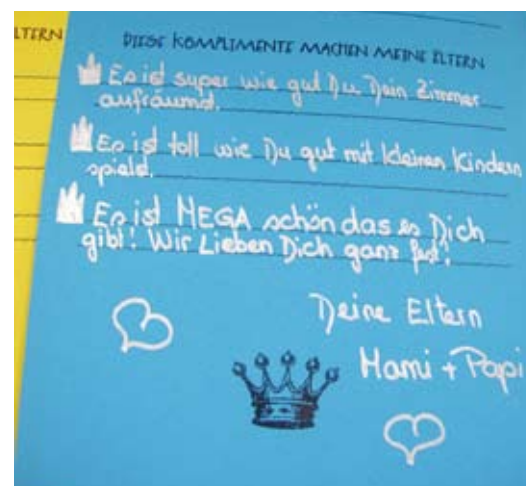 LTERN
DIESE KOMPLIMENTE MACHEN MEINE ELTERN
Es ist super wie gut Du Dein Zimmer
aufräumst.
Es ist toll wie Du gut mit kleinen Kindern
spielst.
Es ist MEGA schön das es Dich
gibt! Wir Lieben Dich ganz fest!
Deine Eltern
Mami + Papi